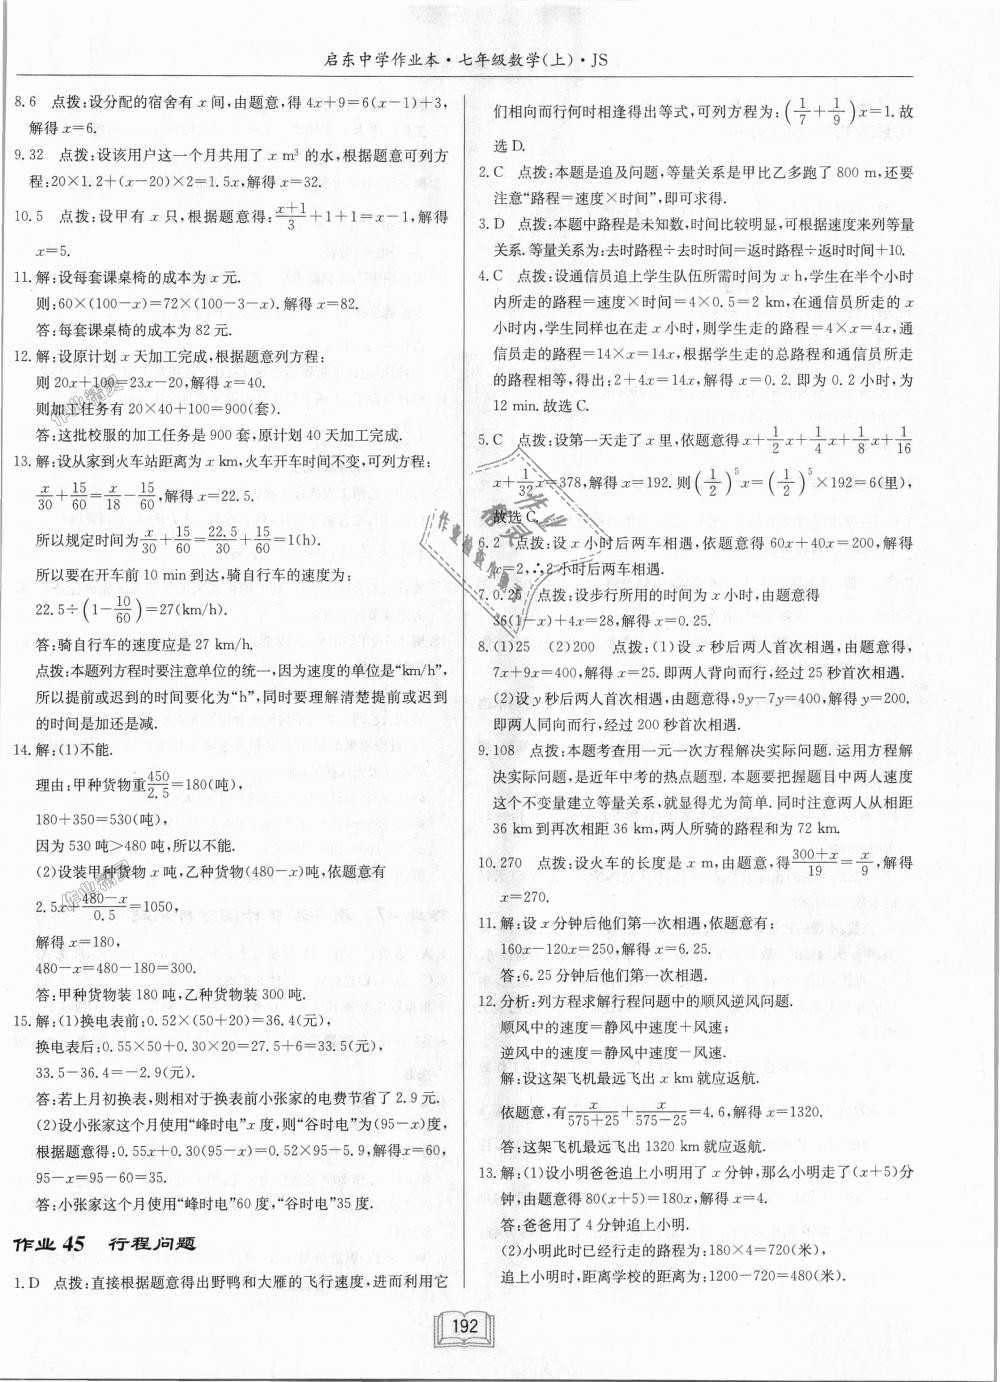 启东中学作业本·七年级数学(上)·JS
8.6　点拨:设分配的宿舍有 x 间,由题意,得 4x+9=6(x-1)+3,
解得 x=6.
9.32　点拨:设该用户这一个月共用了 x m³ 的水,根据题意可列方
程:20×1.2+(x-20)×2=1.5x,解得 x=32.
10.5　点拨:设甲有 x 只,根据题意得:(x+1)/3+1+1=x-1,解得
x=5.
11.解:设每套课桌椅的成本为 x 元.
则:60×(100-x)=72×(100-3-x).解得 x=82.
答:每套课桌椅的成本为 82 元.
12.解:设原计划 x 天加工完成,根据题意列方程:
则 20x+100=23x-20,解得 x=40.
则加工任务有 20×40+100=900(套).
答:这批校服的加工任务是 900 套,原计划 40 天加工完成.
13.解:设从家到火车站距离为 x km,火车开车时间不变,可列方程:
x/30+15/60=x/18-15/60,解得 x=22.5.
所以规定时间为 x/30+15/60=22.5/30+15/60=1(h).
所以要在开车前 10 min 到达,骑自行车的速度为:
22.5÷(1-10/60)=27(km/h).
答:骑自行车的速度应是 27 km/h.
点拨:本题列方程时要注意单位的统一,因为速度的单位是“km/h”,
所以提前或迟到的时间要化为“h”,同时要理解清楚提前或迟到
的时间是加还是减.
14.解:(1)不能.
理由:甲种货物重 450/2.5=180(吨),
180+350=530(吨),
因为 530 吨>480 吨,所以不能.
(2)设装甲种货物 x 吨,乙种货物(480-x)吨,依题意有
2.5x+(480-x)/0.5=1050,
解得 x=180,
480-x=480-180=300.
答:甲种货物装 180 吨,乙种货物装 300 吨.
15.解:(1)换电表前:0.52×(50+20)=36.4(元),
换电表后:0.55×50+0.30×20=27.5+6=33.5(元),
33.5-36.4=-2.9(元).
答:若上月初换表,则相对于换表前小张家的电费节省了 2.9 元.
(2)设小张家这个月使用“峰时电”x 度,则“谷时电”为(95-x)度,
根据题意得:0.55x+0.30(95-x)=0.52×95-5.9,解得x=60,
95-x=95-60=35.
答:小张家这个月使用“峰时电”60度,“谷时电”35度.
作业 45　行程问题
1.D　点拨:直接根据题意得出野鸭和大雁的飞行速度,进而利用它
们相向而行何时相逢得出等式,可列方程为:(1/7+1/9)x=1.故
选D.
2.C　点拨:本题是追及问题,等量关系是甲比乙多跑了 800 m,还要
注意“路程=速度×时间”,即可求得.
3.D　点拨:本题中路程是未知数,时间比较明显,可根据速度来列等量
关系.等量关系为:去时路程÷去时时间=返时路程÷返时时间+10.
4.C　点拨:设通信员追上学生队伍所需时间为 x h,学生在半个小时
内所走的路程=速度×时间=4×0.5=2 km,在通信员所走的 x
小时内,学生同样也在走 x 小时,则学生走的路程=4×x=4x,通
信员走的路程=14×x=14x,根据学生走的总路程和通信员所走
的路程相等,得出:2+4x=14x,解得 x=0.2.即为 0.2 小时,为
12 min.故选C.
5.C　点拨:设第一天走了 x 里,依题意得 x+1/2x+1/4x+1/8x+1/16
x+1/32x=378,解得 x=192.则(1/2)⁵x=(1/2)⁵×192=6(里),
故选C.
6.2　点拨:设 x 小时后两车相遇,依题意得 60x+40x=200,解得
x=2,∴2小时后两车相遇.
7.0.25　点拨:设步行所用的时间为 x 小时,由题意得
36(1-x)+4x=28,解得 x=0.25.
8.(1)25　(2)200　点拨:(1)设 x 秒后两人首次相遇,由题意得,
7x+9x=400,解得 x=25.即两人背向而行,经过 25 秒首次相遇.
(2)设 y 秒后两人首次相遇,由题意得,9y-7y=400,解得 y=200.
即两人同向而行,经过 200 秒首次相遇.
9.108　点拨:本题考查用一元一次方程解决实际问题.运用方程解
决实际问题,是近年中考的热点题型.本题要把握题目中两人速度
这个不变量建立等量关系,就显得尤为简单.同时注意两人从相距
36 km到再次相距 36 km,两人所骑的路程和为 72 km.
10.270　点拨:设火车的长度是 x m,由题意,得(300+x)/19=x/9,解得
x=270.
11.解:设 x 分钟后他们第一次相遇,依题意有:
160x-120x=250,解得 x=6.25.
答:6.25 分钟后他们第一次相遇.
12.分析:列方程求解行程问题中的顺风逆风问题.
顺风中的速度=静风中速度+风速;
逆风中的速度=静风中速度-风速.
解:设这架飞机最远飞出 x km 就应返航.
依题意,有 x/(575+25)+x/(575-25)=4.6,解得 x=1320.
答:这架飞机最远飞出 1320 km 就应返航.
13.解:(1)设小明爸爸追上小明用了 x 分钟,那么小明走了(x+5)分
钟,由题意得 80(x+5)=180x,解得 x=4.
答:爸爸用了 4 分钟追上小明.
(2)小明此时已经行走的路程为:180×4=720(米),
追上小明时,距离学校的距离为:1200-720=480(米).
192
作业精灵
作业精灵
作业精灵
作业检查小助手